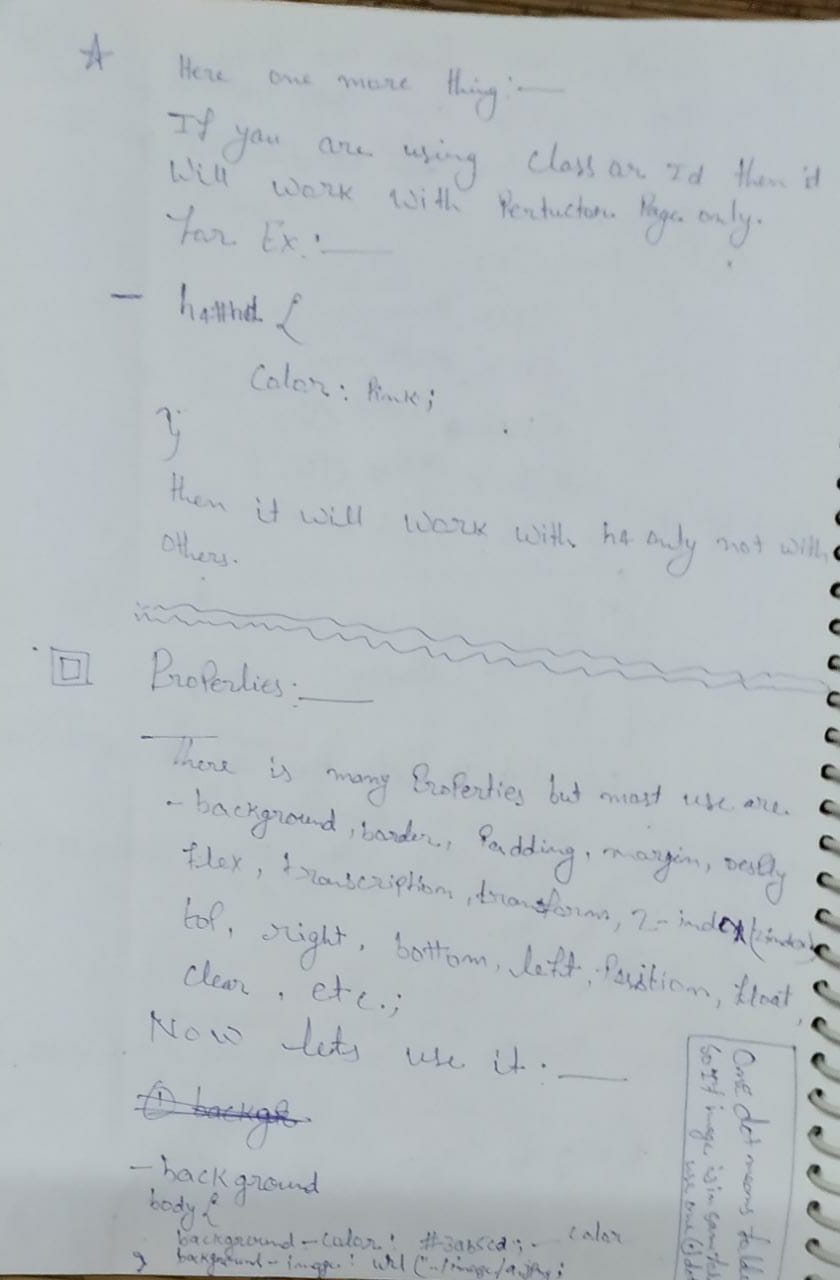 Here one more thing:—
If you are using class or Id then it
Will work with Pertucton Page only.
For Ex:—
- h4#hd {
Color: Pink;
}
then it will work with h4 only not with
others.
Properties:—
There is many Properties but most use are
- background, border, Padding, margin,
flex, transcription, transform, z-index (zindex)
top, right, bottom, left, Position, float,
clear, etc.;
Now lets use it:—
① backgr
- background
body {
background-color: #3abscd; - color
background-image: url("../image/a.jpg;
}
One dot means
So If image is in
use one(.)